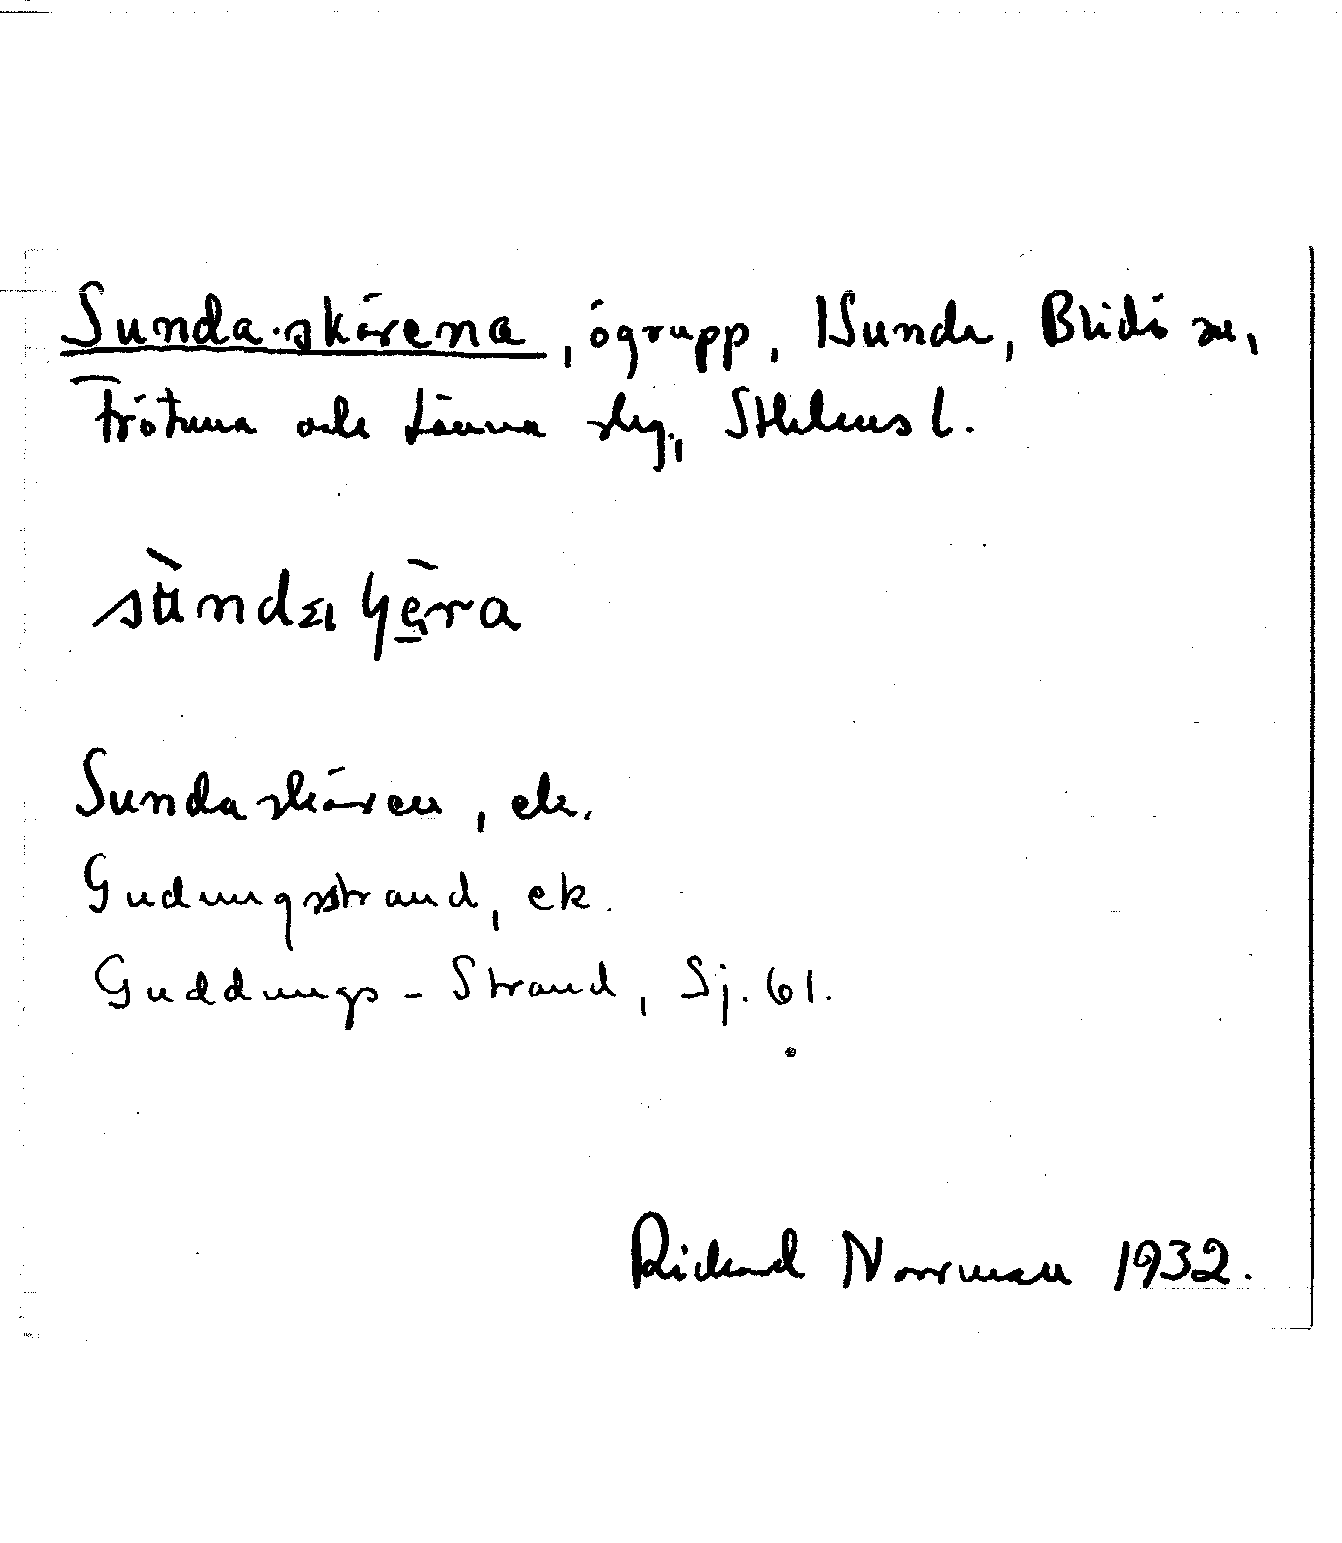 Sunda-skären͞a, ögrupp, 1 Sunda, Blidö sn,
Frötuna och Länna skg., Sthlms l.
Sundaskären, ek.
Gudungsstrand, ek.
Guddungs-Strand, Sj. 61.
Rickard Norrman 1932.